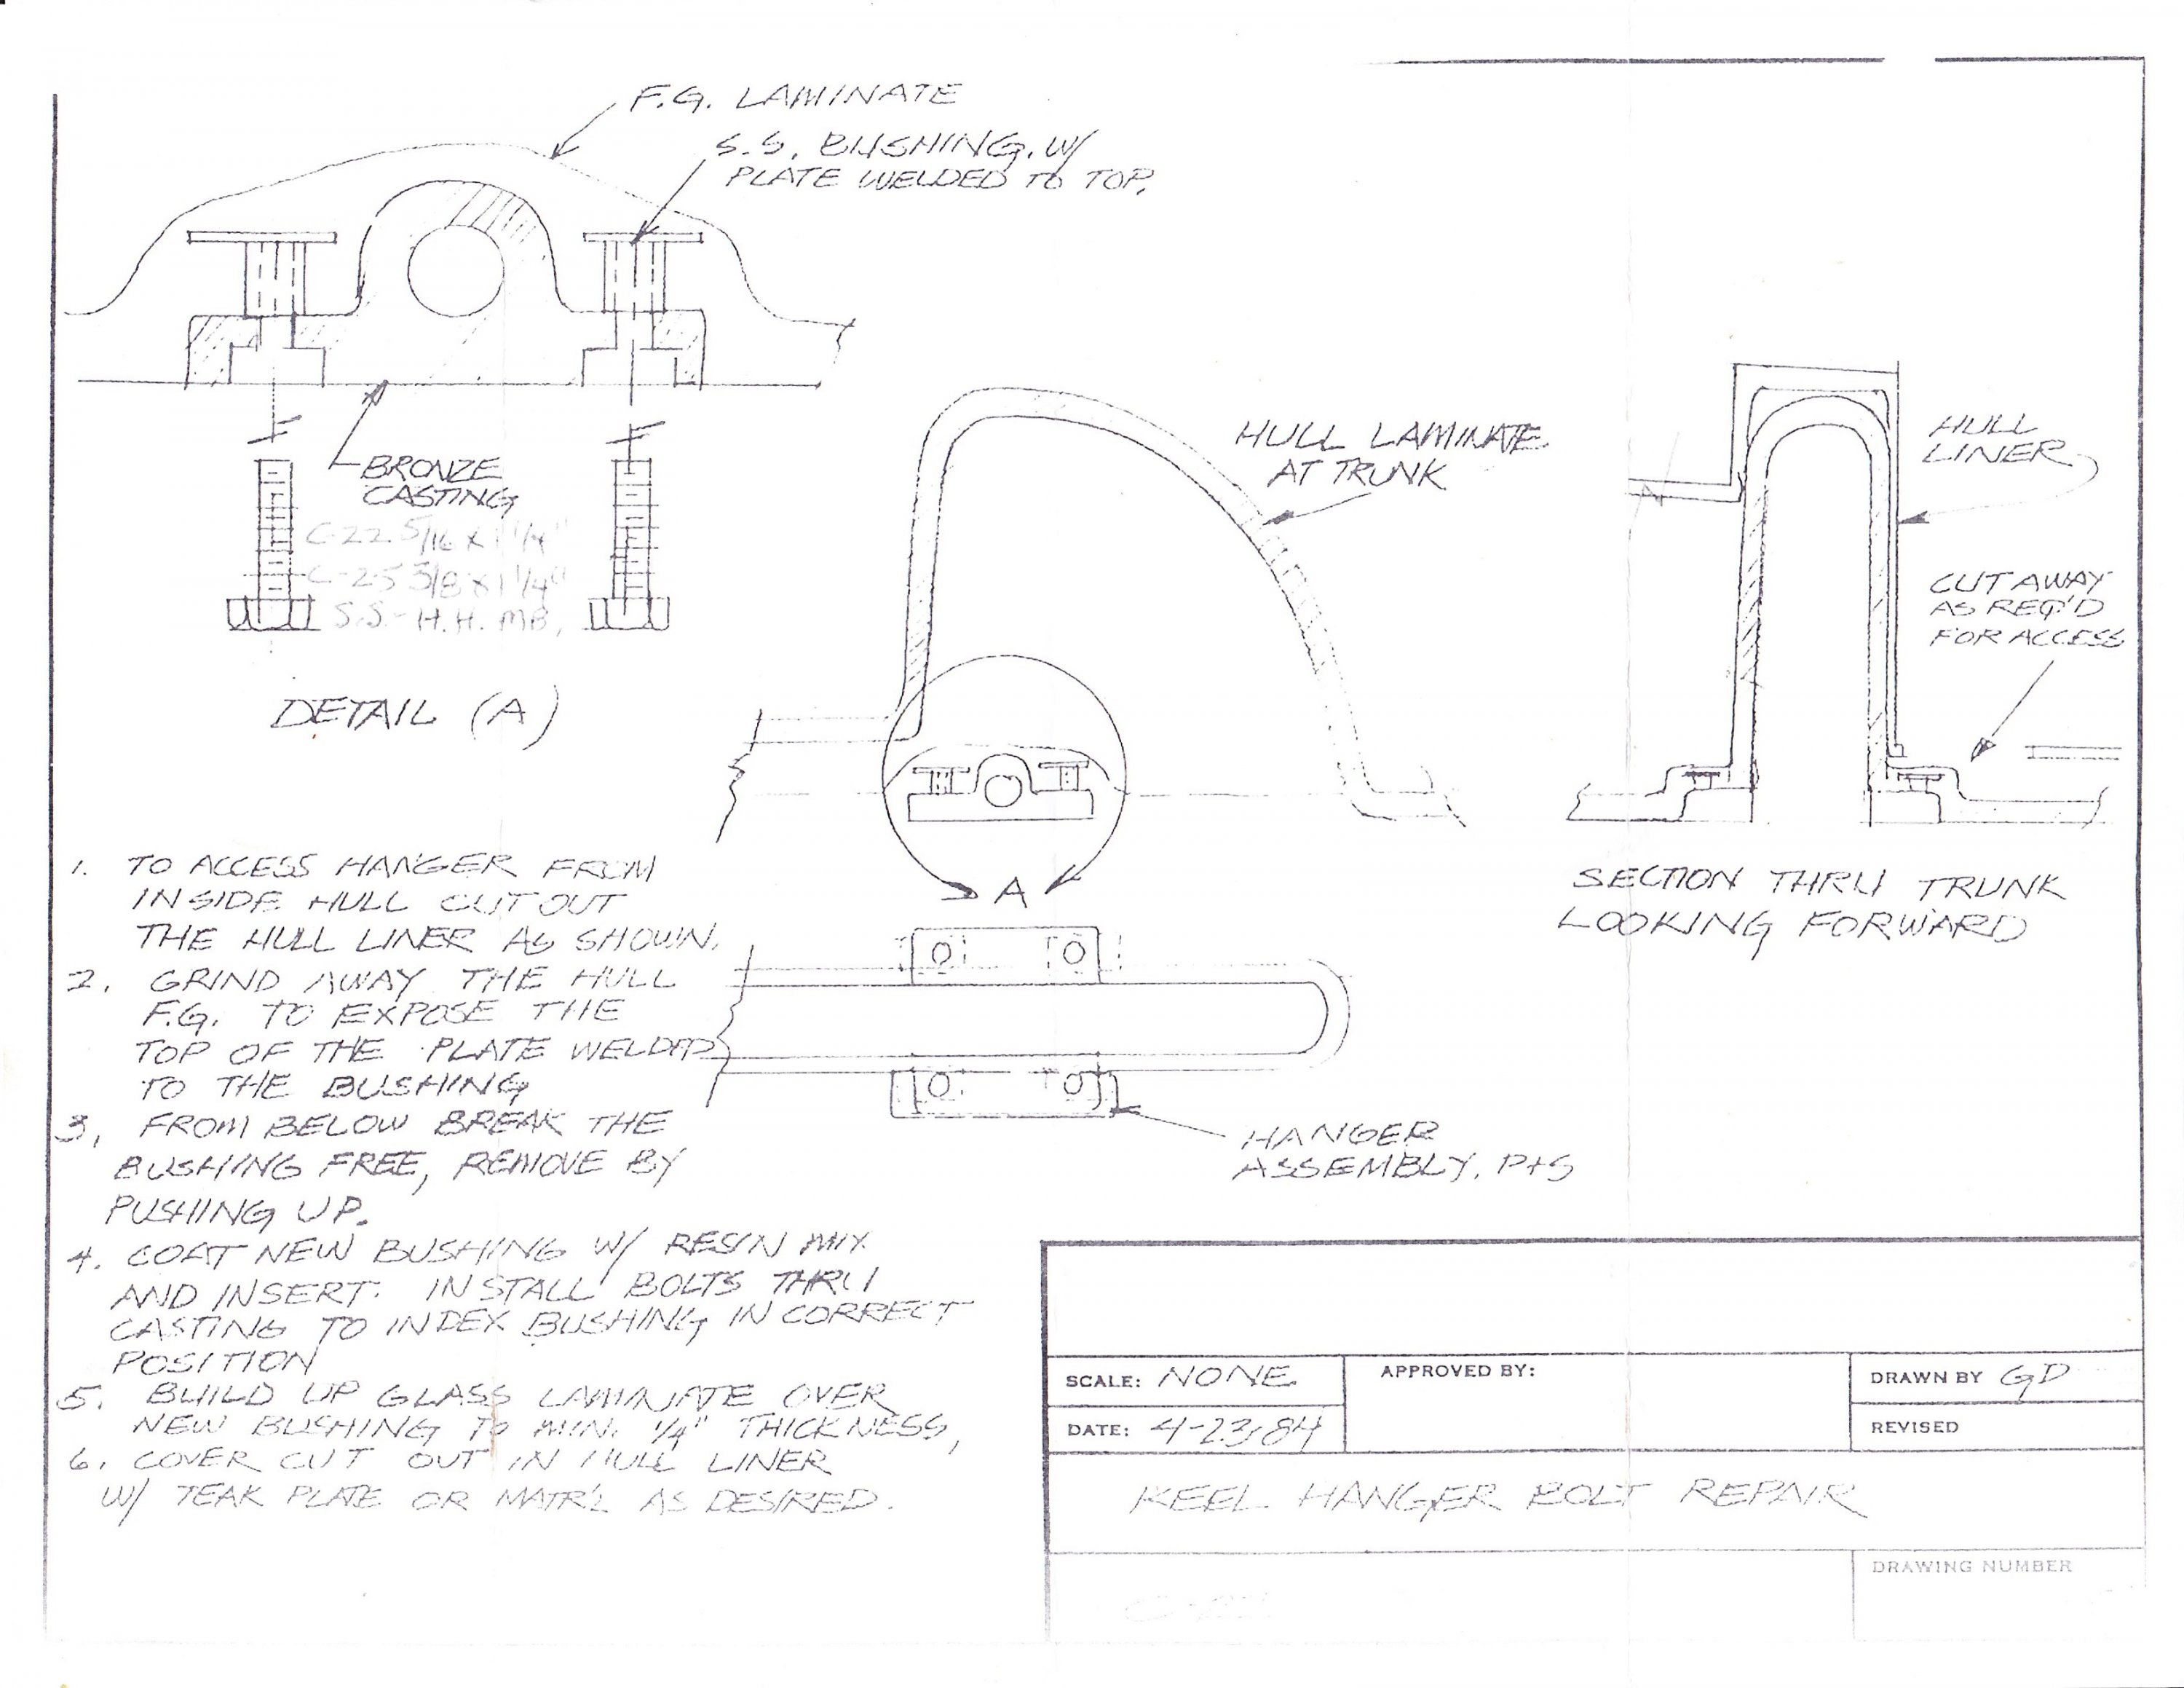 F.G. LAMINATE
S.S. BUSHING. W/
PLATE WELDED TO TOP.
BRONZE
CASTING
C-22 5/16 X 1 1/4"
C-25 3/8 X 1 1/4"
S.S.- H.H. MB,
DETAIL (A)
HULL LAMINATE
AT TRUNK
A
HULL
LINER
CUT AWAY
AS REQ'D
FOR ACCESS
SECTION THRU TRUNK
LOOKING FORWARD
HANGER
ASSEMBLY, P+S
1. TO ACCESS HANGER FROM
INSIDE HULL CUT OUT
THE HULL LINER AS SHOWN.
2. GRIND AWAY THE HULL
F.G. TO EXPOSE THE
TOP OF THE PLATE WELDED
TO THE BUSHING
3, FROM BELOW BREAK THE
BUSHING FREE, REMOVE BY
PUSHING UP.
4. COAT NEW BUSHING W/ RESIN MIX
AND INSERT. INSTALL BOLTS THRU
CASTING TO INDEX BUSHING IN CORRECT
POSITION
5. BUILD UP GLASS LAMINATE OVER
NEW BUSHING TO MIN. 1/4" THICKNESS,
6. COVER CUT OUT IN HULL LINER
W/ TEAK PLATE OR MATR'L AS DESIRED.
SCALE: NONE
APPROVED BY:
DRAWN BY GD
DATE: 4-23,84
REVISED
KEEL HANGER BOLT REPAIR
DRAWING NUMBER